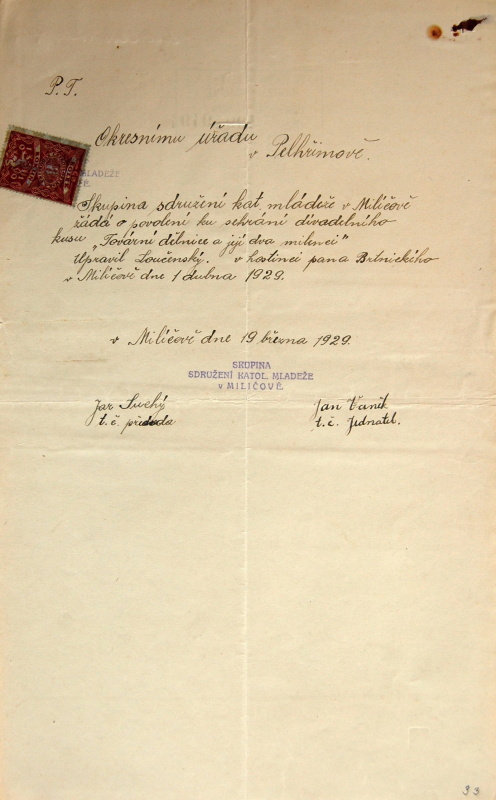 P. T.
Okresnímu úřadu
v Pelhřimově.
MLÁDEŽE
Skupina sdružení kat. mládeže v Milíčově
žádá o povolení ku sehrání divadelního
kusu „Tovární dělnice a její dva milenci"
Upravil Loučenský. v hostinci pana Brtnického
v Milíčově dne 1 dubna 1929.
v Milíčově dne 19 března 1929.
SKUPINA
SDRUŽENÍ KATOL. MLADEŽE
v MILIČOVĚ.
Jar Suchý
t. č. předseda
Jan Vaněk
t. č. Jednatel.
33